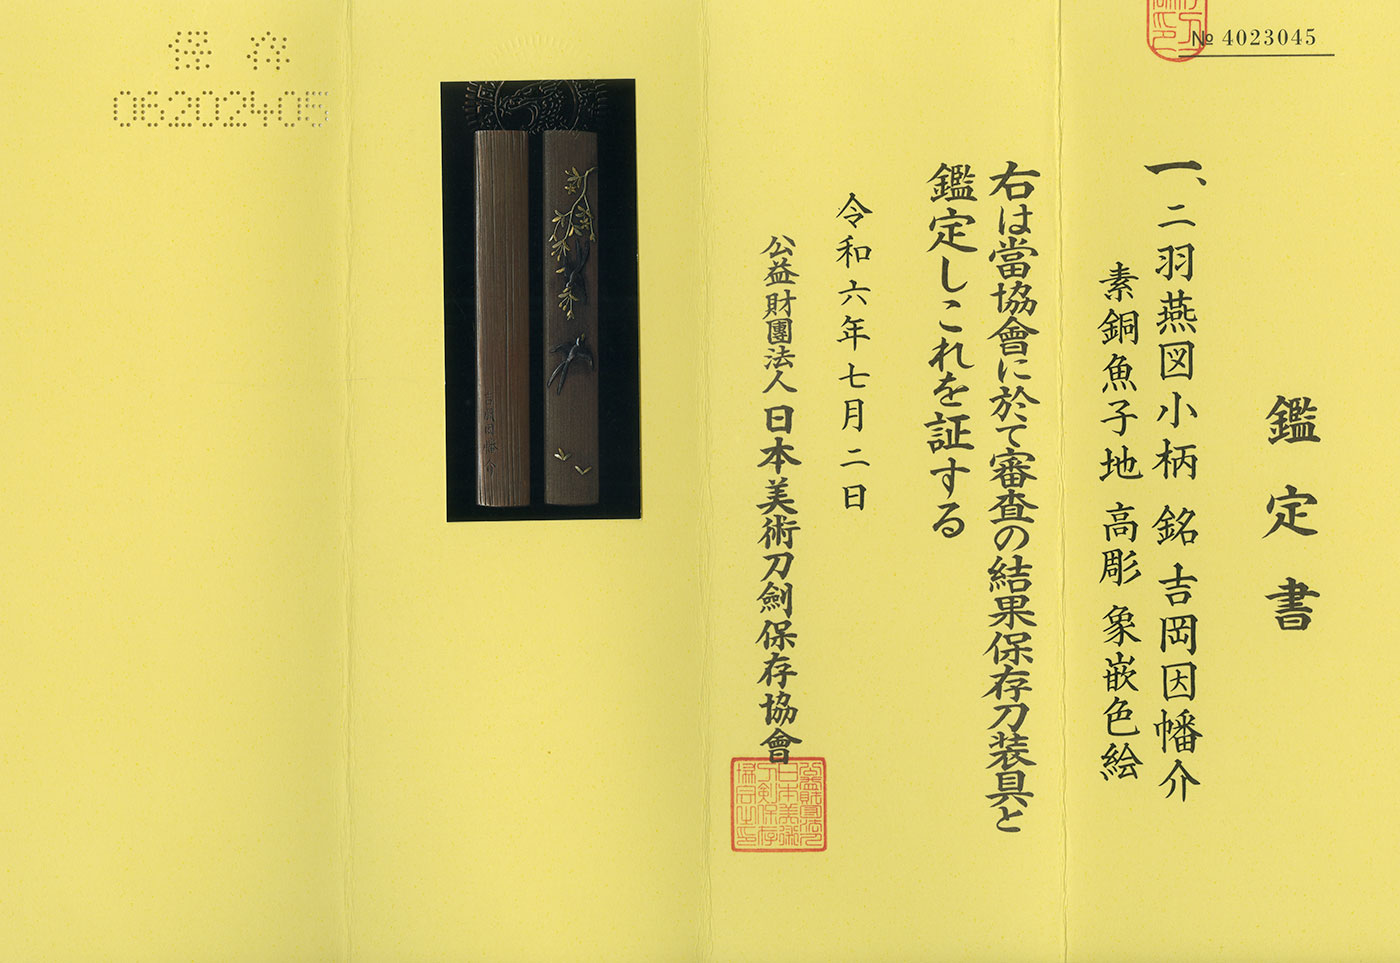 № 4023045
鑑定書
一、二羽燕図小柄 銘 吉岡因幡介
素銅魚子地 高彫 象嵌色絵
右は當協會に於て審査の結果保存刀装具と
鑑定しこれを証する
令和六年七月二日
公益財團法人 日本美術刀劍保存協會
保存
06202405